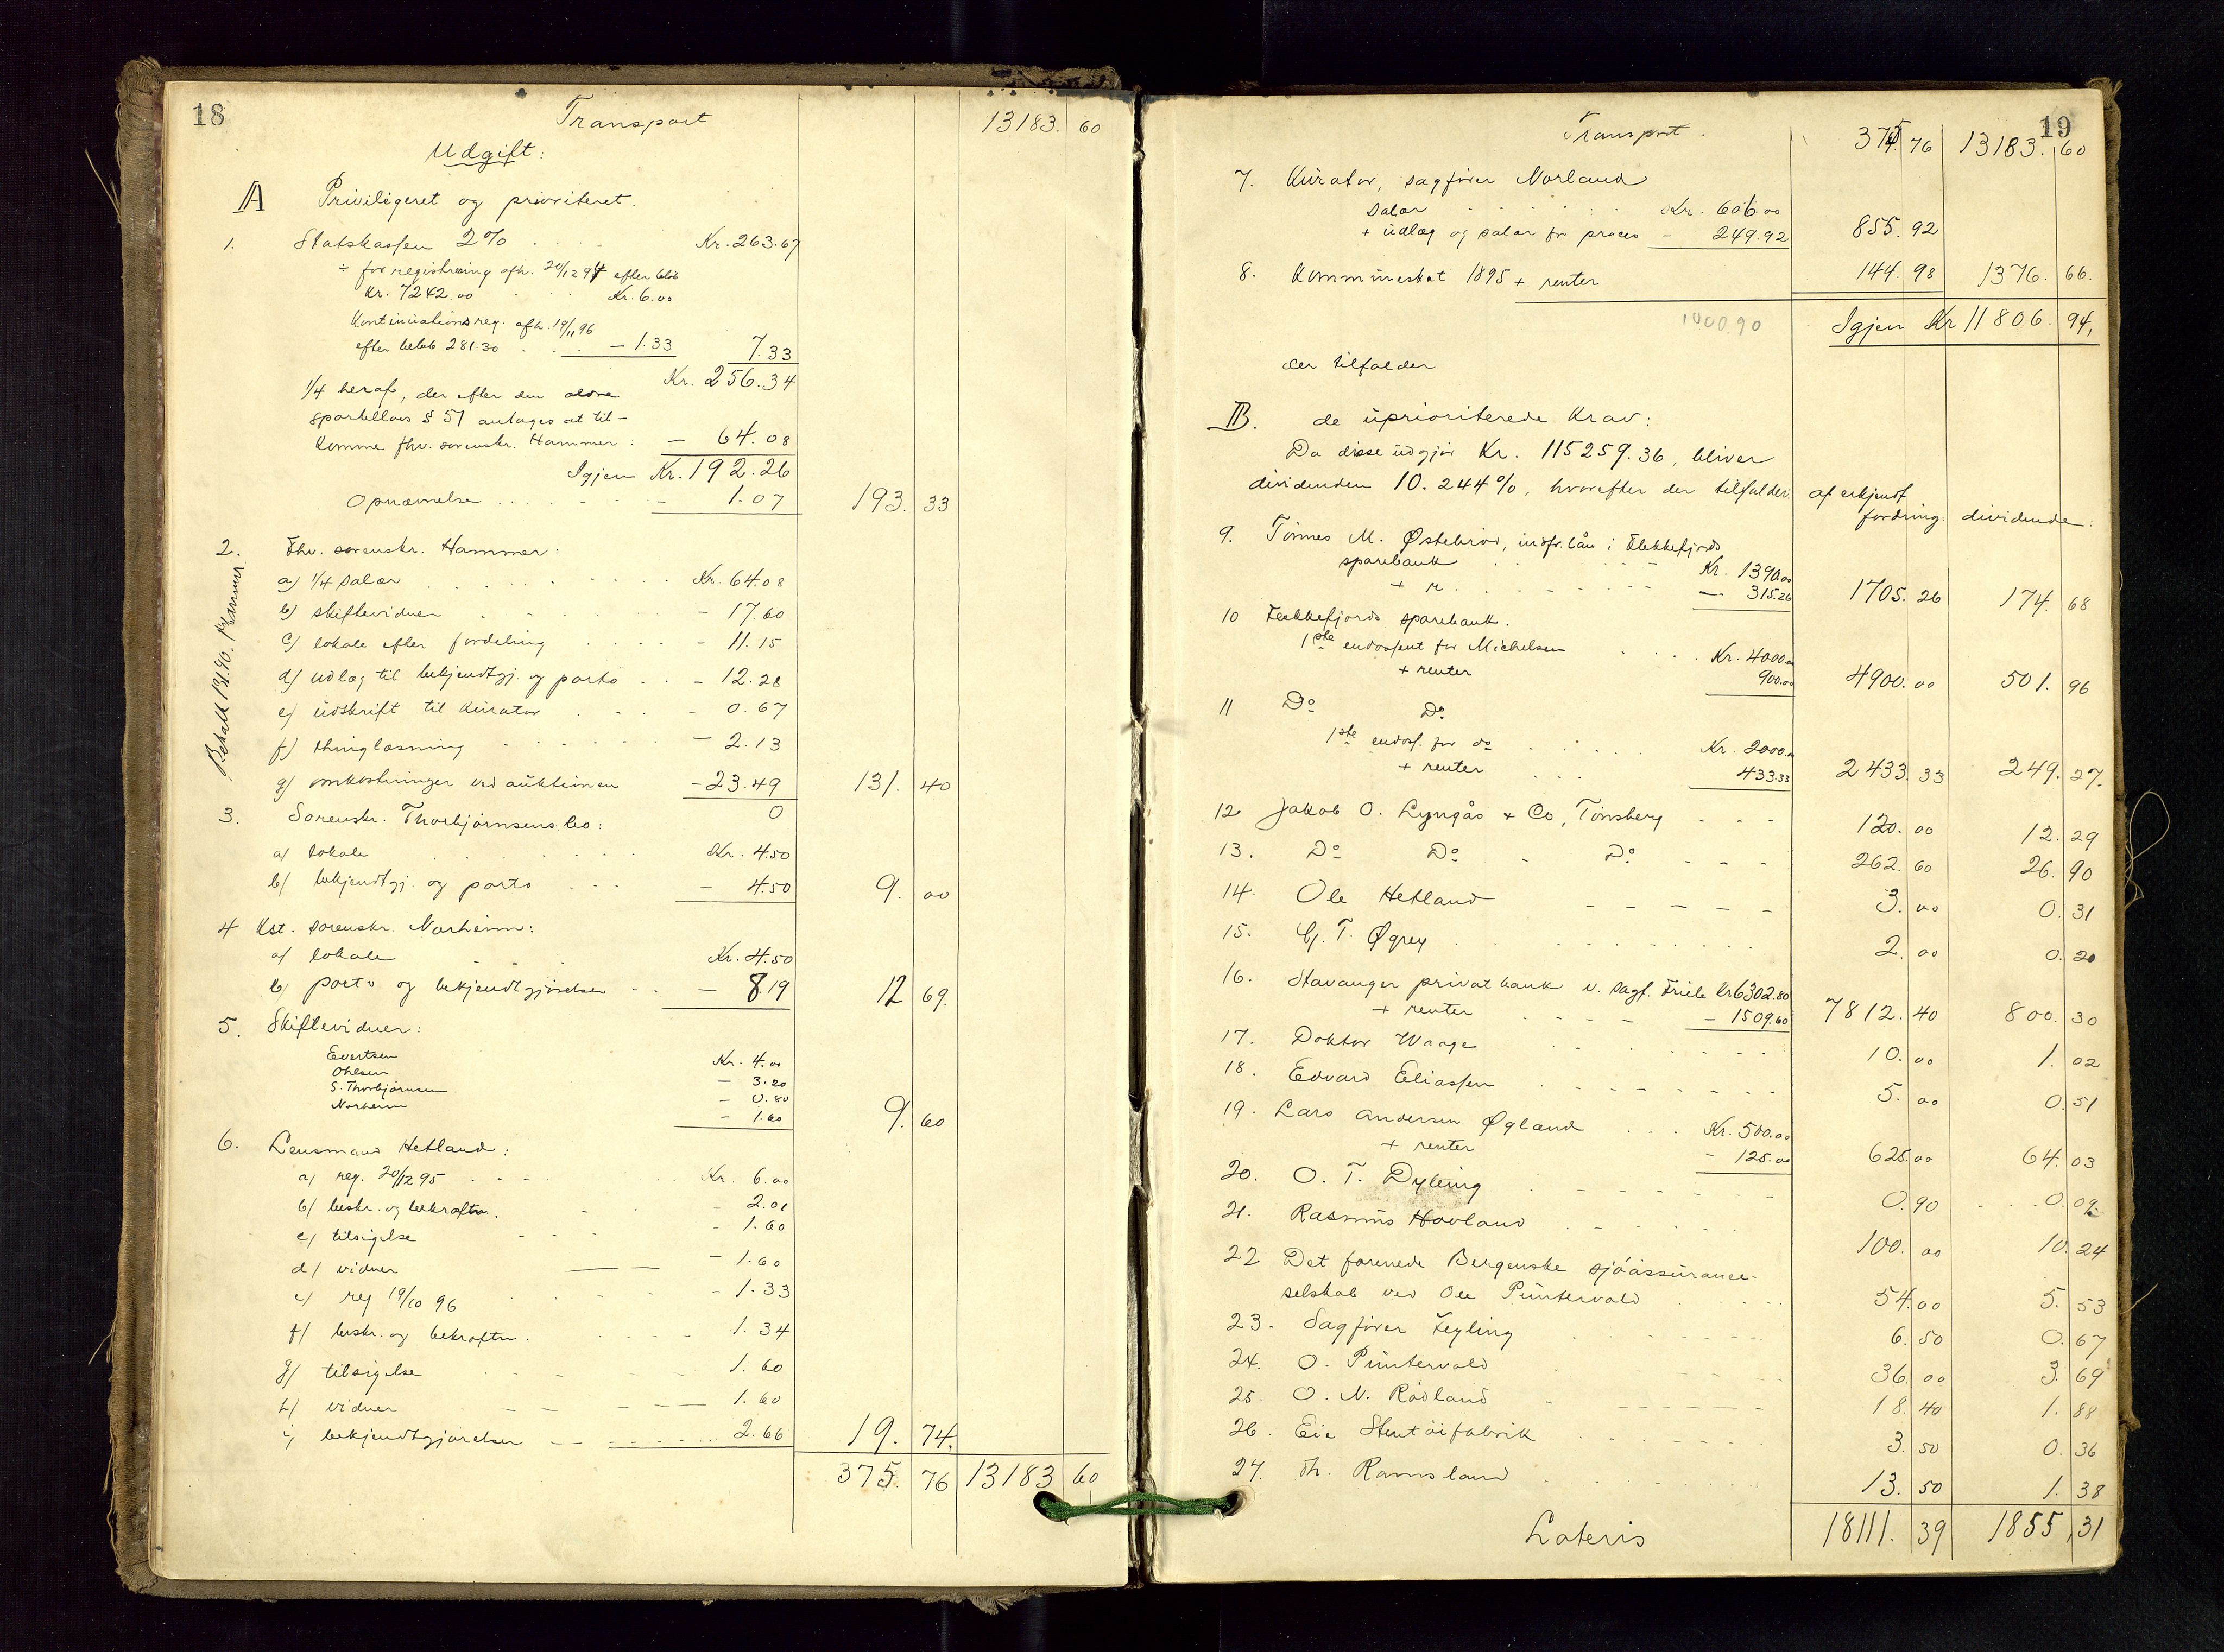 18
Transport 13183. 60
Udgift:
A Priviligeret og prioriteret.
1. Statskassen 2% . . . . Kr. 263.67
÷ for registrering afh. 20/12 94 efter beløb
Kr. 7242.00 . . Kr. 6.00
Kontinuationsreg. afh. 19/11 96
efter beløb 281.30 . . . — 1.33 7.33
Kr. 256.34
1/4 heraf, der efter den ældre
sportellovs § 51 antages at til-
komme fhv. sorenskr. Hammer: — 64.08
Igjen Kr. 192.26
Opnævnelse . . . . . . - 1.07 193. 33
2. Fhv. sorenskr. Hammer:
a) 1/4 salær . . . . . . . . Kr. 64.08
b) skiftevidner . . . . . - 17.60
c) lokale efter fordeling . . . . - 11.15
d) udlæg til bekjendtgj. og porto . . - 12.28
e) udskrift til kurator . . . - 0.67
f) thinglæsning . . . . . . - 2.13
g) omkostninger ved auktionen - 23.49 131. 40
3. Sorenskr. Thorbjørnsens bo: 0
a) lokale . . . . . . . Kr. 4.50
b) bekjendtgj. og porto . . . - 4.50 9. 00
4 Kst. sorenskr. Norheim:
a) lokale . . . Kr. 4.50
b) porto og bekjendtgjørelser - . - 8.19 12 69.
5. Skiftevidner:
Evertsen Kr. 4.00
Ohlsen - 3.20
S. Thorbjørnsen - 0.80
Norheim - 1.60 9. 60
6. Lensmand Hetland:
a) reg. 20/12 95 . . . . . . Kr. 6.00
b) beskr. og bekræftn. . . - 2.01
c) tilsigelse . . . . - 1.60
d) vidner - 1.60
e) reg 19/10 96 . . . . - 1.33
f) beskr. og bekræftn. . . . . 1.34
g) tilsigelse . . . . 1.60
h) vidner - - - - 1.60
i) bekjendtgjørelser - - . . . . 2.66 19. 74.
375. 76 13183 60
19
Transport. 375. 76 13183. 60
7. Kurator, sagfører Norland
Salær . . . . . . Kr. 606.00
+ udlæg og salær for proces - 249.92 855. 92
8. Kommuneskat 1895 + renter 144. 98 1376. 66.
1000.90 Igjen Kr 11806. 94,
der tilfalder
B. de uprioriterede Krav:
Da disse udgjør Kr. 115259.36, bliver
dividenden 10.244%, hvorefter der tilfalder: af erkjendt
fordring: dividende:
9. Tønnes M. Østebrød, indfr. lån i Flekkefjords
sparebank . . . . Kr. 1390.00
+ r. . . . . . . . — 315.26 1705. 26 174. 68
10 Flekkefjords sparebank.
1ste endossent for Michelsen . . . . Kr. 4000.00
+ renter 900.00 4900. 00 501. 96
11 Do Do
1ste endoss. for do . . . . . . Kr. 2000.00
+ renter . . . 433.33 2433. 33 249. 27.
12 Jakob O. Lyngås & Co, Tønsberg - - - 120. 00 12. 29
13. Do Do - Do - - - 262. 60 26. 90
14. Ole Hetland - - - - - 3. 00 0. 31
15. G. T. Øgrey . . . . . . . . . . 2. 00 0. 20
16. Stavanger privatbank v. sagf. Friele Kr 6302.80
+ renter . . . . - 1509.60 7812. 40 800. 30
17. Doktor Waage . . . . . . . 10. 00 1. 02
18. Edvard Eliassen . . . . . . . . 5. 00 0. 51
19. Lars Andersen Øgland . . . Kr. 500.00
+ renter - 125.00 625. 00 64. 03
20. O. T. Dyling - - - - - - - 0. 90 . . . 0. 09.
21. Rasmus Hovland . . . . . . 100. 00 10. 24
22 Det forenede Bergenske sjøassurance-
selskab ved Ole Puntervold . . . . . 54. 00 5. 53
23. Sagfører Feyling . . . . . . . 6. 50 0. 67
24. O. Puntervold . . . . 36. 00 3. 69
25. O. N. Rødland - - - - - - 18. 40 1. 88
26. Eie Stentøifabrik . . . . . . . 3. 50 0. 36
27. Th. Ramsland . . . . . . . 13. 50 1. 38
Lateris 18111. 39 1855, 31